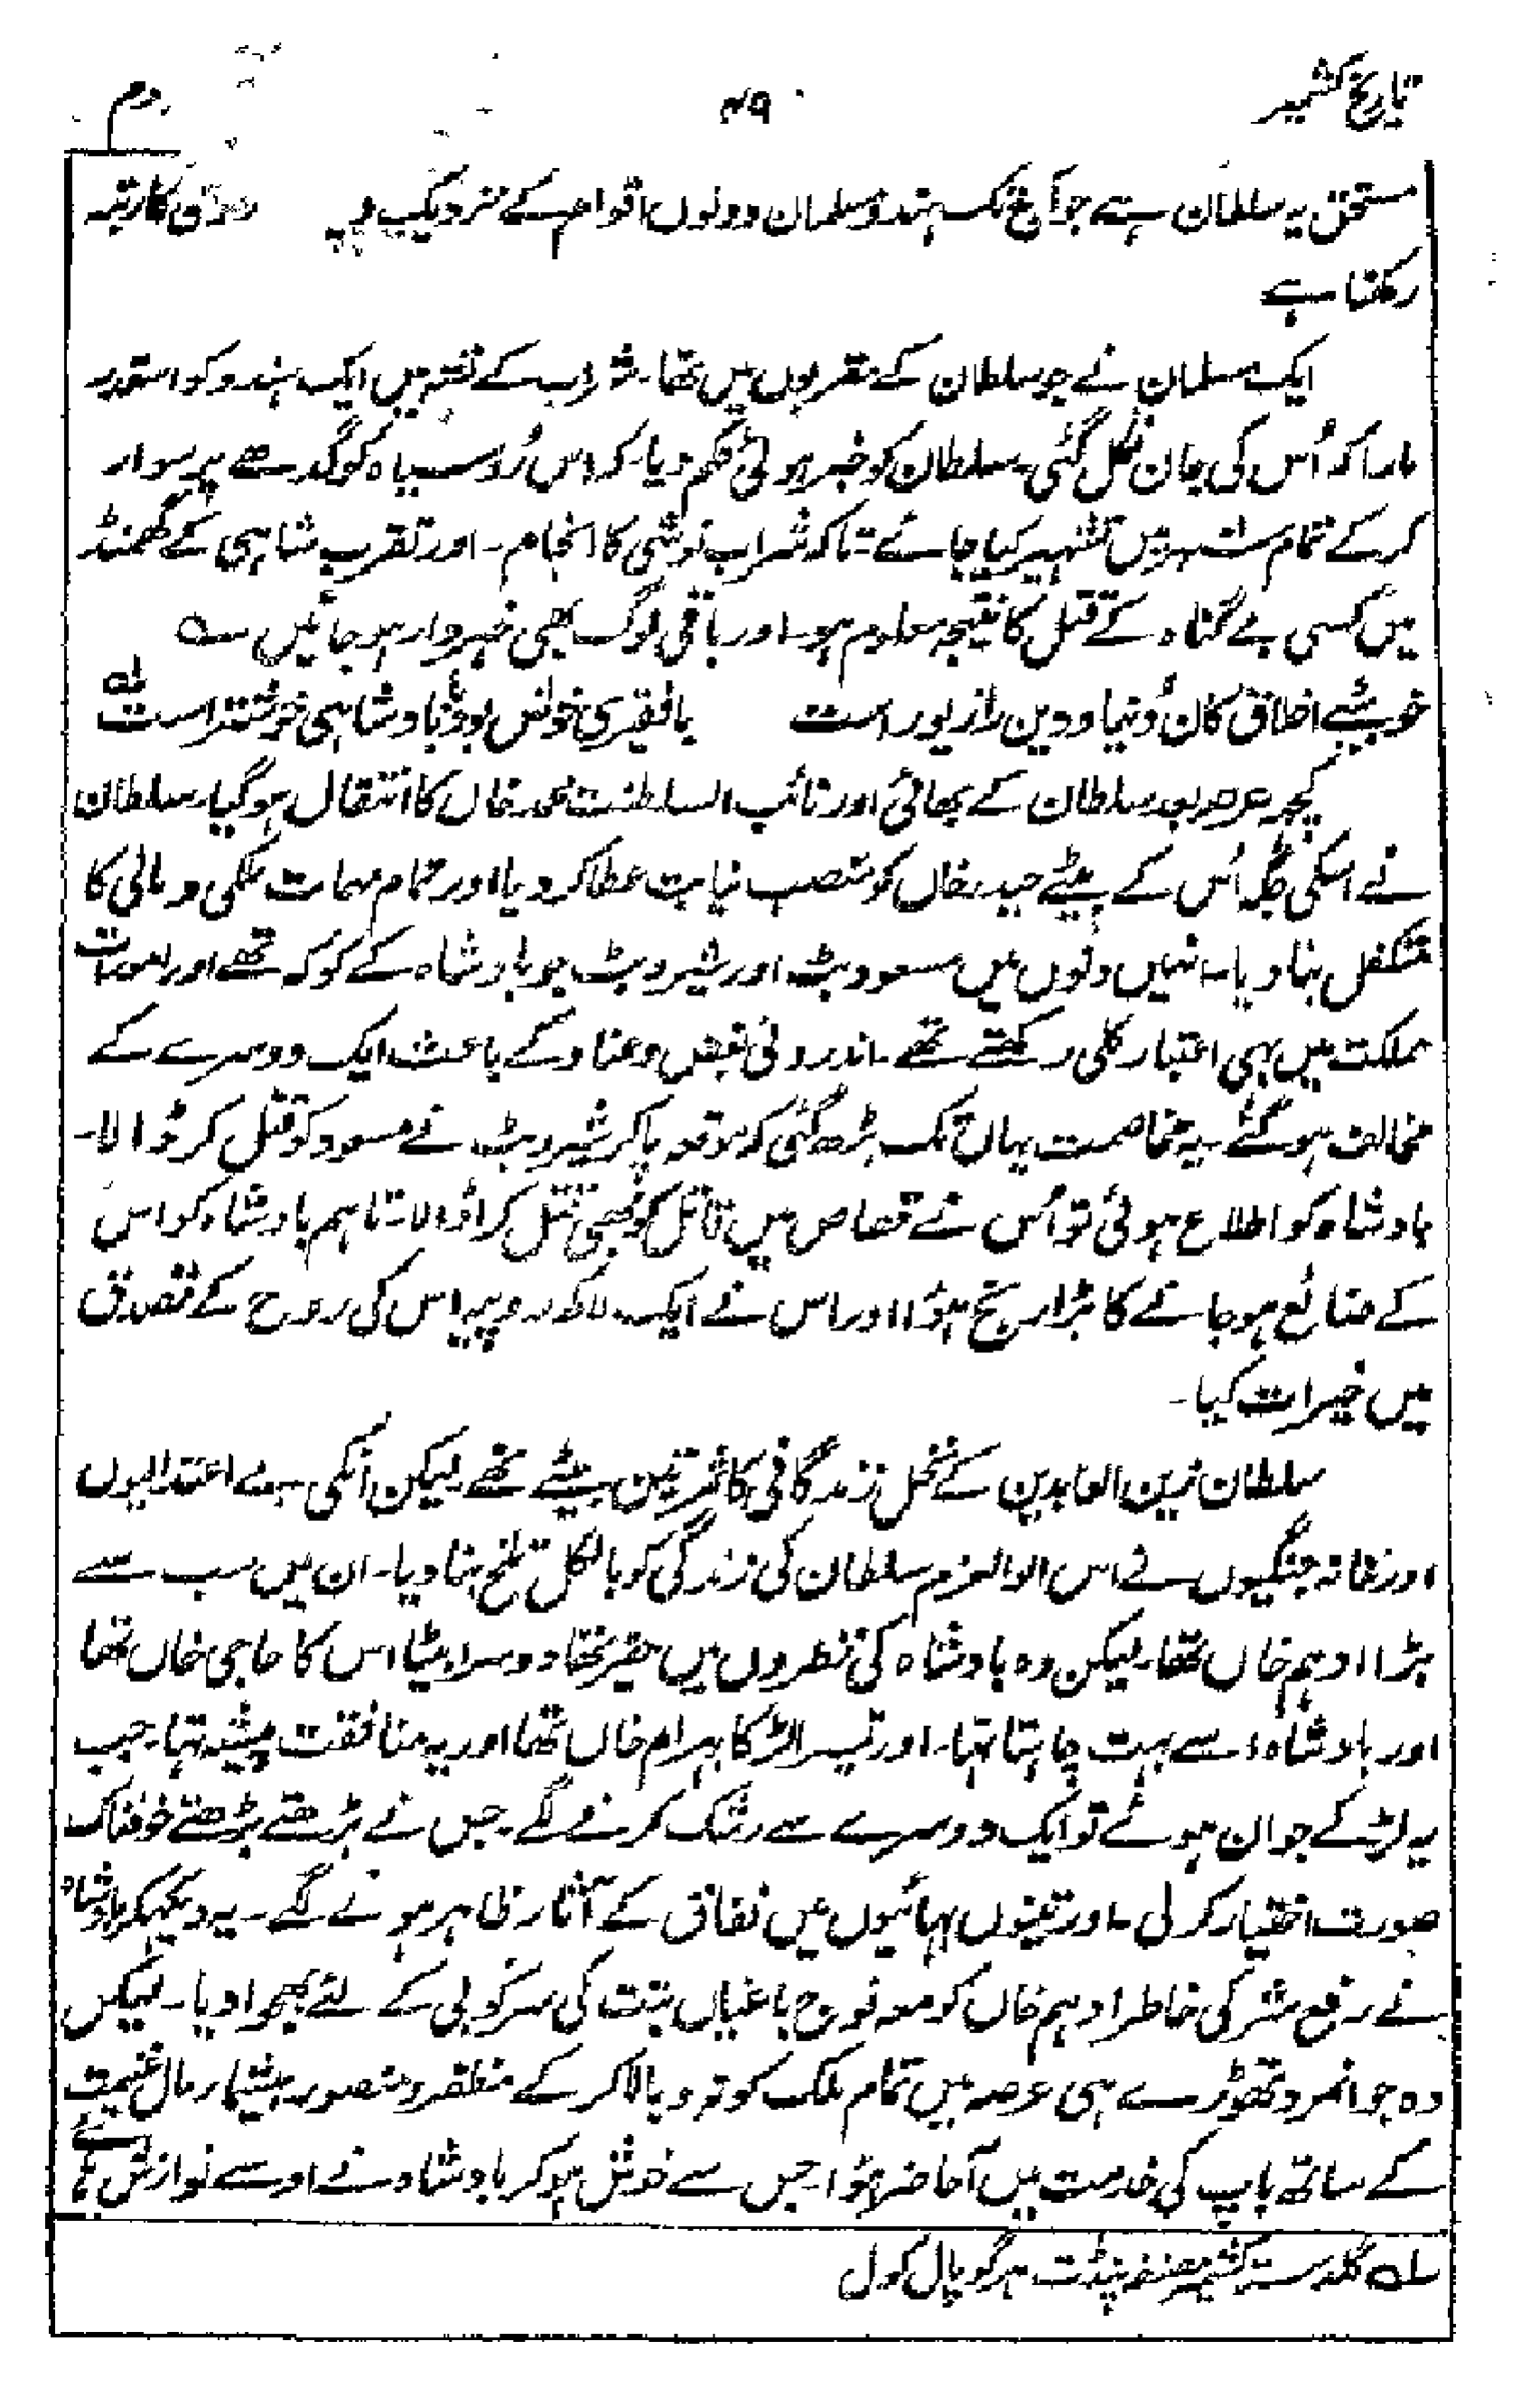 تاریخ کشمیر
۴۹
دوم
مستحق یہ سلطان ہے جو آج تک ہندو مسلمان دونوں اقوام کے نزدیک کا رتبہ
رکھتا ہے
ایک مسلمان نے جو سلطان کے مقربوں میں تھا۔ شراب کے نشہ میں ایک ہندو کو اسقدر
مارا کہ اُس کی جان نکل گئی۔ سلطان کو خبر ہوئی حکم دیا۔ کہ اس رُو سیاہ کو گدھے پر سوار
کر کے تمام شہر میں تشہیر کیا جائے تاکہ شراب نوشی کا انجام۔ اور تقرب شاہی کے گھمنڈ
میں کسی بے گناہ کے قتل کا نتیجہ معلوم ہو۔ اور باقی لوگ بھی خبردار ہو جائیں ؎
خوبیٔے اخلاق کان دُنیا و دین را زیور است با فقیری خوش بود با بادشاہی خوشتر است لہ
کچھ عرصہ بعد سلطان کے بھائی اور نائب السلطنت محمد خاں کا انتقال ہو گیا۔ سلطان
نے اسکی جگہ اُس کے بیٹے حیدر خاں کو منصب نیابت عطا کر دیا اور تمام مہمات ملکی و مالی کا
متکفل بنا دیا۔ انہیں دنوں میں مسعود بٹ اور شیرو بٹ جو بادشاہ کے کوکہ تھے اور امورات
مملکت میں بھی اعتبار کلی رکھتے تھے۔ اندرونی بغض و عناد کے باعث ایک دوسرے کے
مخالف ہو گئے یہ مخاصمت یہاں تک بڑھ گئی کہ موقعہ پا کر شیرو بٹ نے مسعود کو قتل کر ڈالا۔
بادشاہ کو اطلاع ہوئی تو اُس نے قصاص میں قاتل کو بھی قتل کرا ڈالا۔ تاہم بادشاہ کو اس
کے ضائع ہو جانے کا بڑا رنج ہؤا اور اس نے ایک لاکھ روپیہ اس کی روح کے تصدق
میں خیرات کیا۔
سلطان زین العابدین کے نخل زندگانی کا ثمر تین بیٹے تھے۔ لیکن اُنکی بے اعتدالیوں
اور خانہ جنگیوں نے اس اولوالعزم سلطان کی زندگی کو بالکل تلخ بنا دیا۔ ان میں سب سے
بڑا ادہم خاں تھا۔ لیکن وہ بادشاہ کی نظروں میں حقیر تھا دوسرا بیٹا اس کا حاجی خاں تھا
اور بادشاہ اسے بہت چاہتا تہا۔ اور تیسرا لڑکا بہرام خاں تھا اور یہ منافقت پیشہ تہا۔ جب
یہ لڑکے جوان ہوئے تو ایک دوسرے سے رشک کرنے لگے۔ جس نے بڑھتے بڑھتے خوفناک
صورت اختیار کر لی۔ اور تینوں بہائیوں میں نفاق کے آثار ظاہر ہونے لگے۔ یہ دیکھکر بادشاہ
نے رفع شر کی خاطر ادہم خاں کو معہ فوج باغیاں تبت کی سرکوبی کے لئے بھجوا دیا۔ لیکن
وہ جوانمرد تھوڑے ہی عرصہ میں تمام ملک کو تہ و بالا کر کے مظفر و منصور بیشمار مال غنیمت
کے ساتھ باپ کی خدمت میں آ حاضر ہؤا۔ جس سے خوش ہو کر بادشاہ نے اوسے نوازش ہائے
لہ گلدستہ کشمیر مصنفہ پنڈت ہرگوپال کول